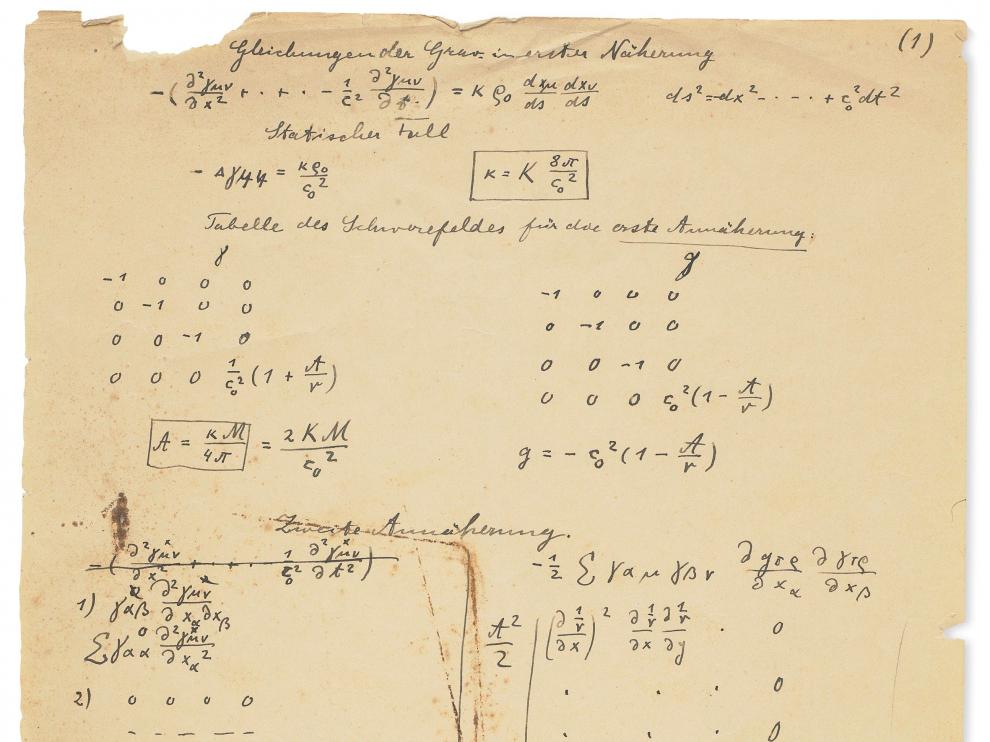 (1)
Gleichungen der Grav. in erster Näherung
−(∂²γμν/∂x² + · + · − 1/c² ∂²γμν/∂t²) = κ ρ₀ dxμ/ds dxν/ds    ds² = −dx² − · − · + c₀² dt²
Statischer Fall
− Δγ44 = κρ₀/c₀²    κ = K 8π/c₀²
Tabelle des Schwerefeldes für die erste Annäherung:
γ    g
−1 0 0 0    −1 0 0 0
0 −1 0 0    0 −1 0 0
0 0 −1 0    0 0 −1 0
0 0 0 1/c₀² (1 + A/r)    0 0 0 c₀² (1 − A/r)
A = κM/4π = 2KM/c₀²    g = − c₀² (1 − A/r)
Zweite Annäherung.
−(∂²γμν/∂x² · + · · 1/c₀² ∂²γμν/∂t²)    −½ Σ γαμ γβν ∂gτρ/∂xα ∂γτρ/∂xβ
1) γαβ ∂²γμν/∂xα∂xβ    A²/2 | (∂ 1/r/∂x)² ∂ 1/r/∂x ∂ 1/r/∂y · 0
Σ γαα ∂²γμν/∂xα²
2) 0 0 0 0    · · · 0
− − − −    · · · 0